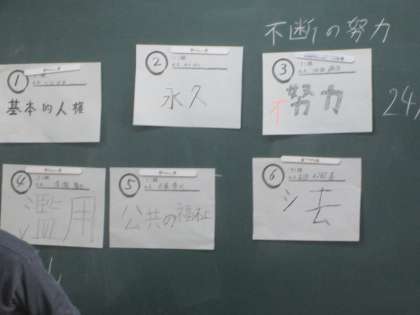 不断の努力
①
基本的人権
②
永久
③
努力
24,
④
濫用
⑤
公共の福祉
⑥
法